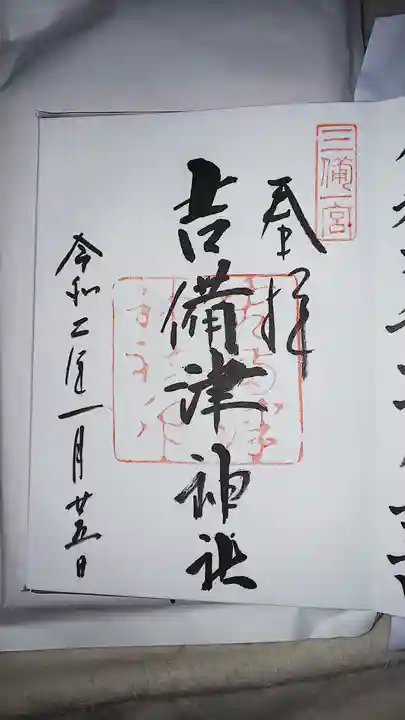 三備一宮
奉拝
吉備津神社
令和二年一月廿五日